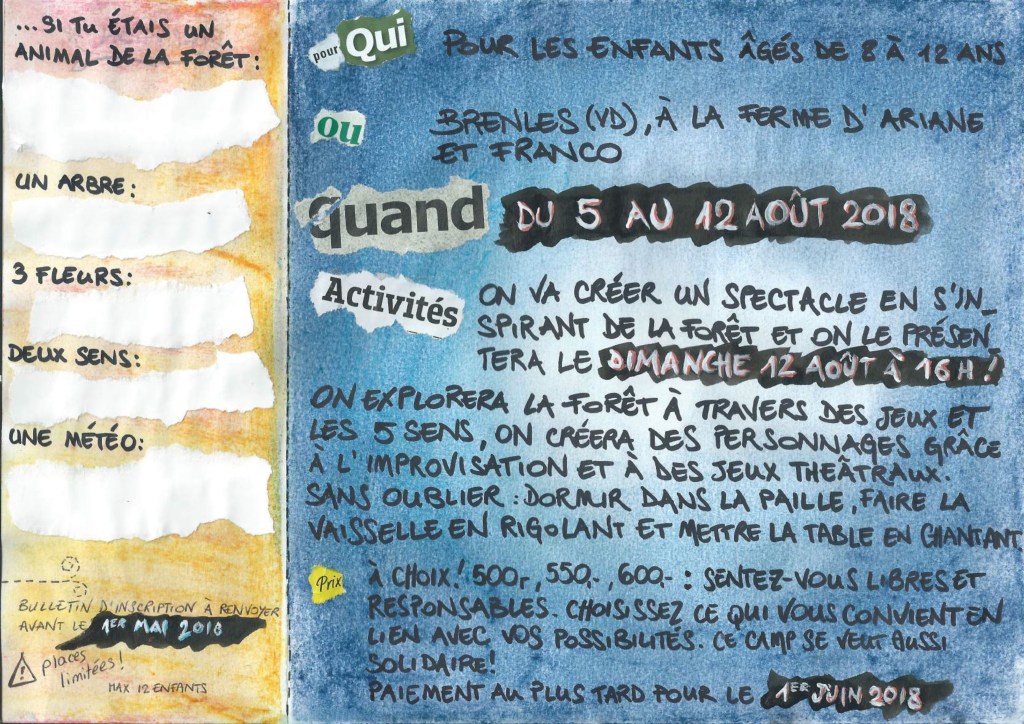 ...SI TU ÉTAIS UN
ANIMAL DE LA FORÊT :
UN ARBRE :
3 FLEURS :
DEUX SENS :
UNE MÉTÉO :
BULLETIN D'INSCRIPTION À RENVOYER
AVANT LE 1ER MAI 2018
places
limitées !
MAX 12 ENFANTS
pour Qui POUR LES ENFANTS ÂGÉS DE 8 À 12 ANS
ou BRENLES (VD), À LA FERME D'ARIANE
ET FRANCO
quand DU 5 AU 12 AOÛT 2018
Activités ON VA CRÉER UN SPECTACLE EN S'IN_
SPIRANT DE LA FORÊT ET ON LE PRÉSEN_
TERA LE DIMANCHE 12 AOÛT À 16H !
ON EXPLORERA LA FORÊT À TRAVERS DES JEUX ET
LES 5 SENS, ON CRÉERA DES PERSONNAGES GRÂCE
À L'IMPROVISATION ET À DES JEUX THEÂTRAUX.
SANS OUBLIER : DORMIR DANS LA PAILLE, FAIRE LA
VAISSELLE EN RIGOLANT ET METTRE LA TABLE EN CHANTANT
Prix À CHOIX ! 500.-, 550.-, 600.- : SENTEZ-VOUS LIBRES ET
RESPONSABLES. CHOISISSEZ CE QUI VOUS CONVIENT EN
LIEN AVEC VOS POSSIBILITÉS. CE CAMP SE VEUT AUSSI
SOLIDAIRE !
PAIEMENT AU PLUS TARD POUR LE 1ER JUIN 2018